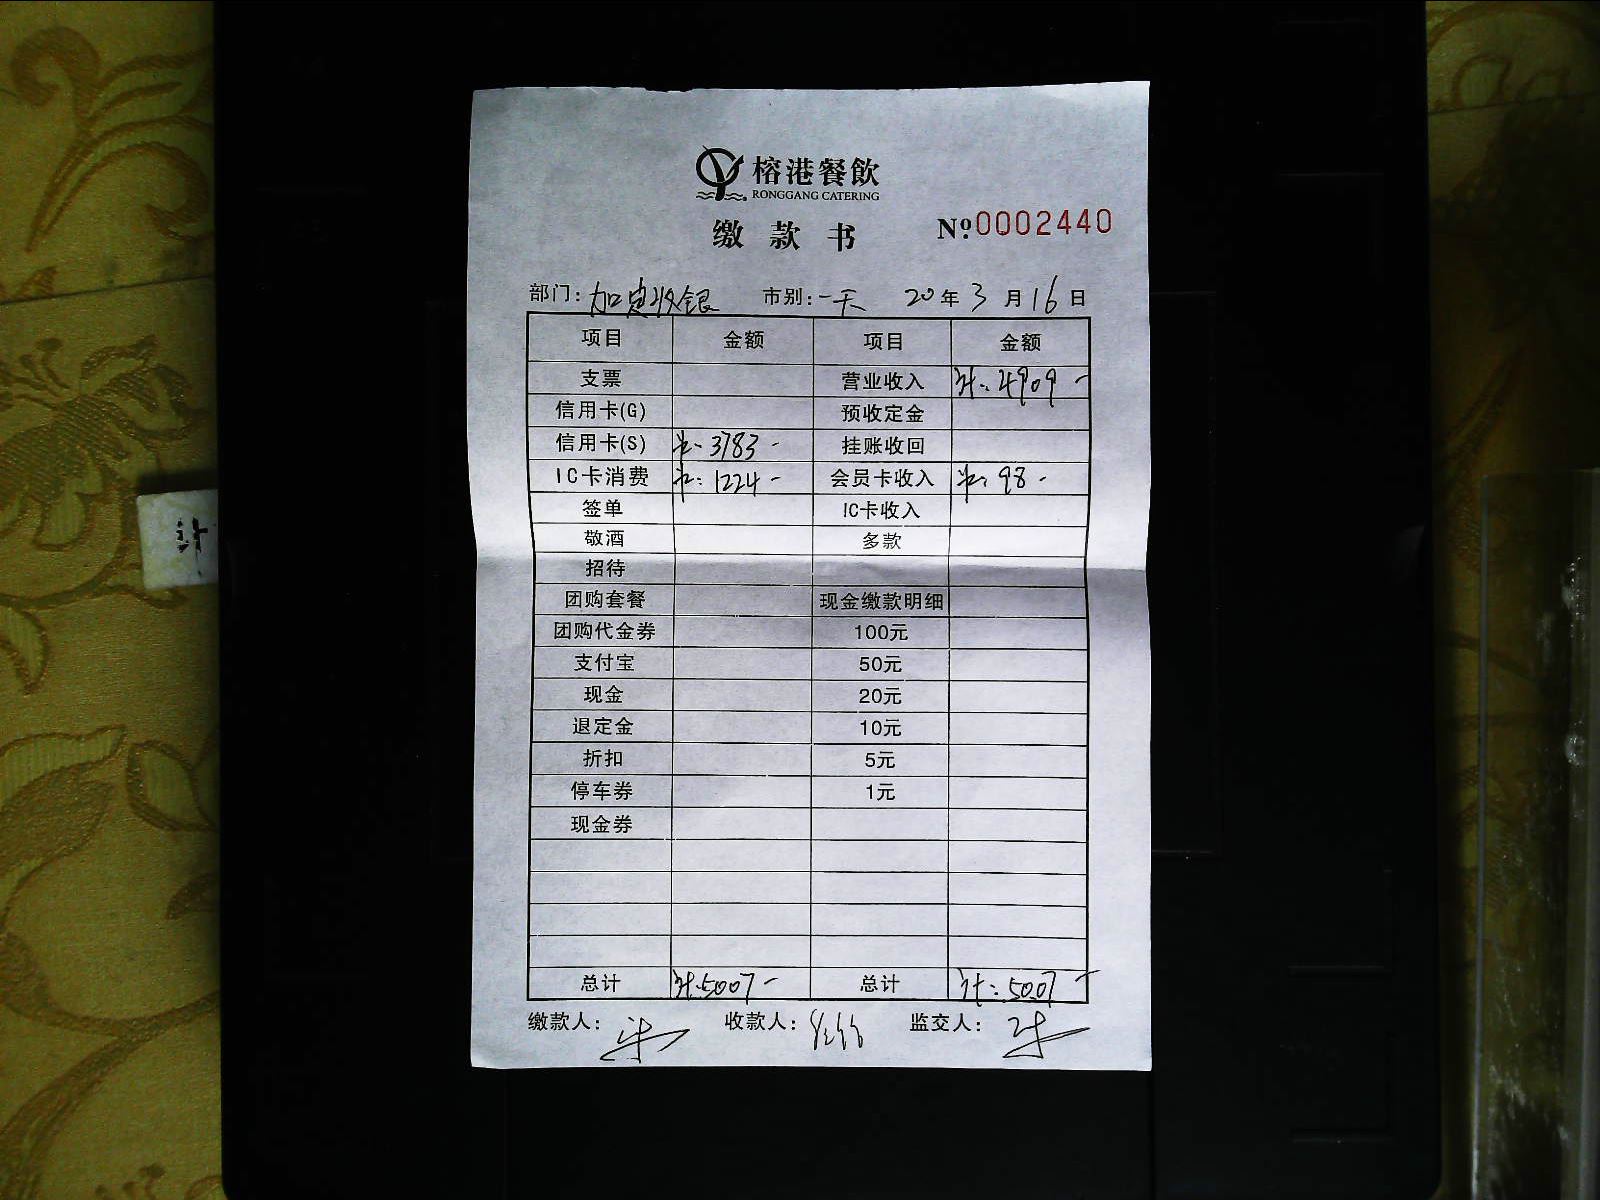 榕港餐飲
RONGGANG CATERING
缴款书 №:0002440
部门: 加定收银 市别: 一天 20年3月16日
项目 金额 项目 金额
支票 营业收入 计:4909-
信用卡(G) 预收定金
信用卡(S) 计:3783- 挂账收回
IC卡消费 计:1224- 会员卡收入 计:98-
签单 IC卡收入
敬酒 多款
招待
团购套餐 现金缴款明细
团购代金券 100元
支付宝 50元
现金 20元
退定金 10元
折扣 5元
停车券 1元
现金券
总计 计:5007- 总计 计:5007-
缴款人: 收款人: 监交人:
计